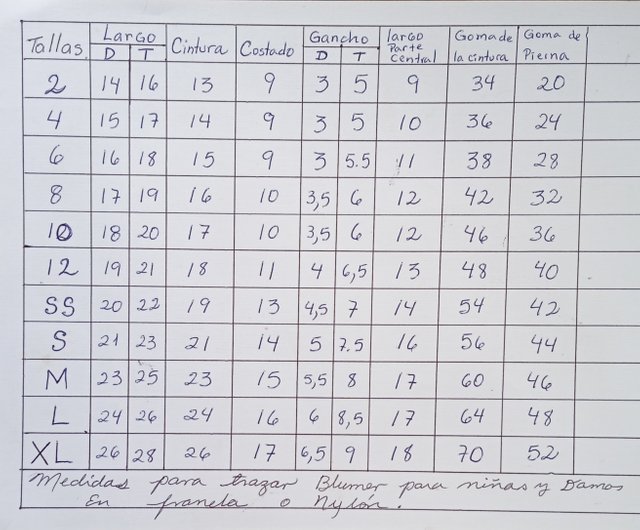 Tallas Largo Cintura Costado Gancho largo Parte Central Goma de la cintura Goma de Pierna
D T D T
2 14 16 13 9 3 5 9 34 20
4 15 17 14 9 3 5 10 36 24
6 16 18 15 9 3 5.5 11 38 28
8 17 19 16 10 3,5 6 12 42 32
10 18 20 17 10 3,5 6 12 46 36
12 19 21 18 11 4 6,5 13 48 40
SS 20 22 19 13 4,5 7 14 54 42
S 21 23 21 14 5 7.5 16 56 44
M 23 25 23 15 5,5 8 17 60 46
L 24 26 24 16 6 8,5 17 64 48
XL 26 28 26 17 6,5 9 18 70 52
Medidas para trazar Blumer para niñas y Damas
En franela o Nylón.